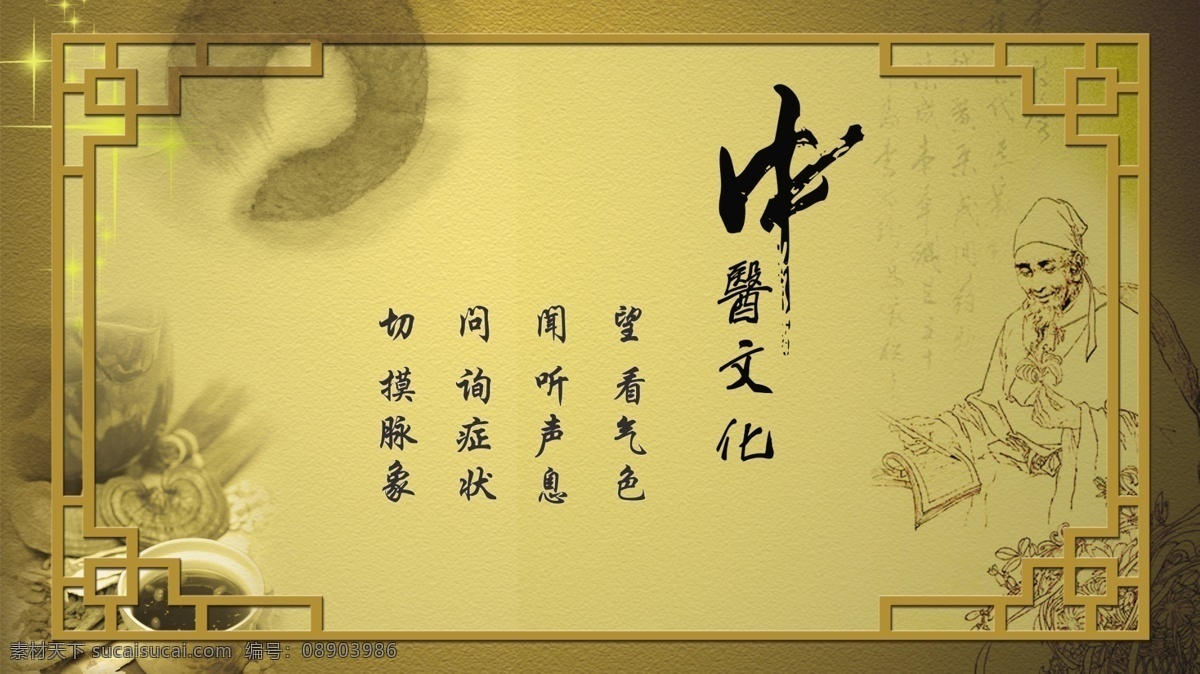 中醫文化
望 看气色
闻 听声息
问 询症状
切 摸脉象
素材天下 sucaisucai.com 编号：08903986